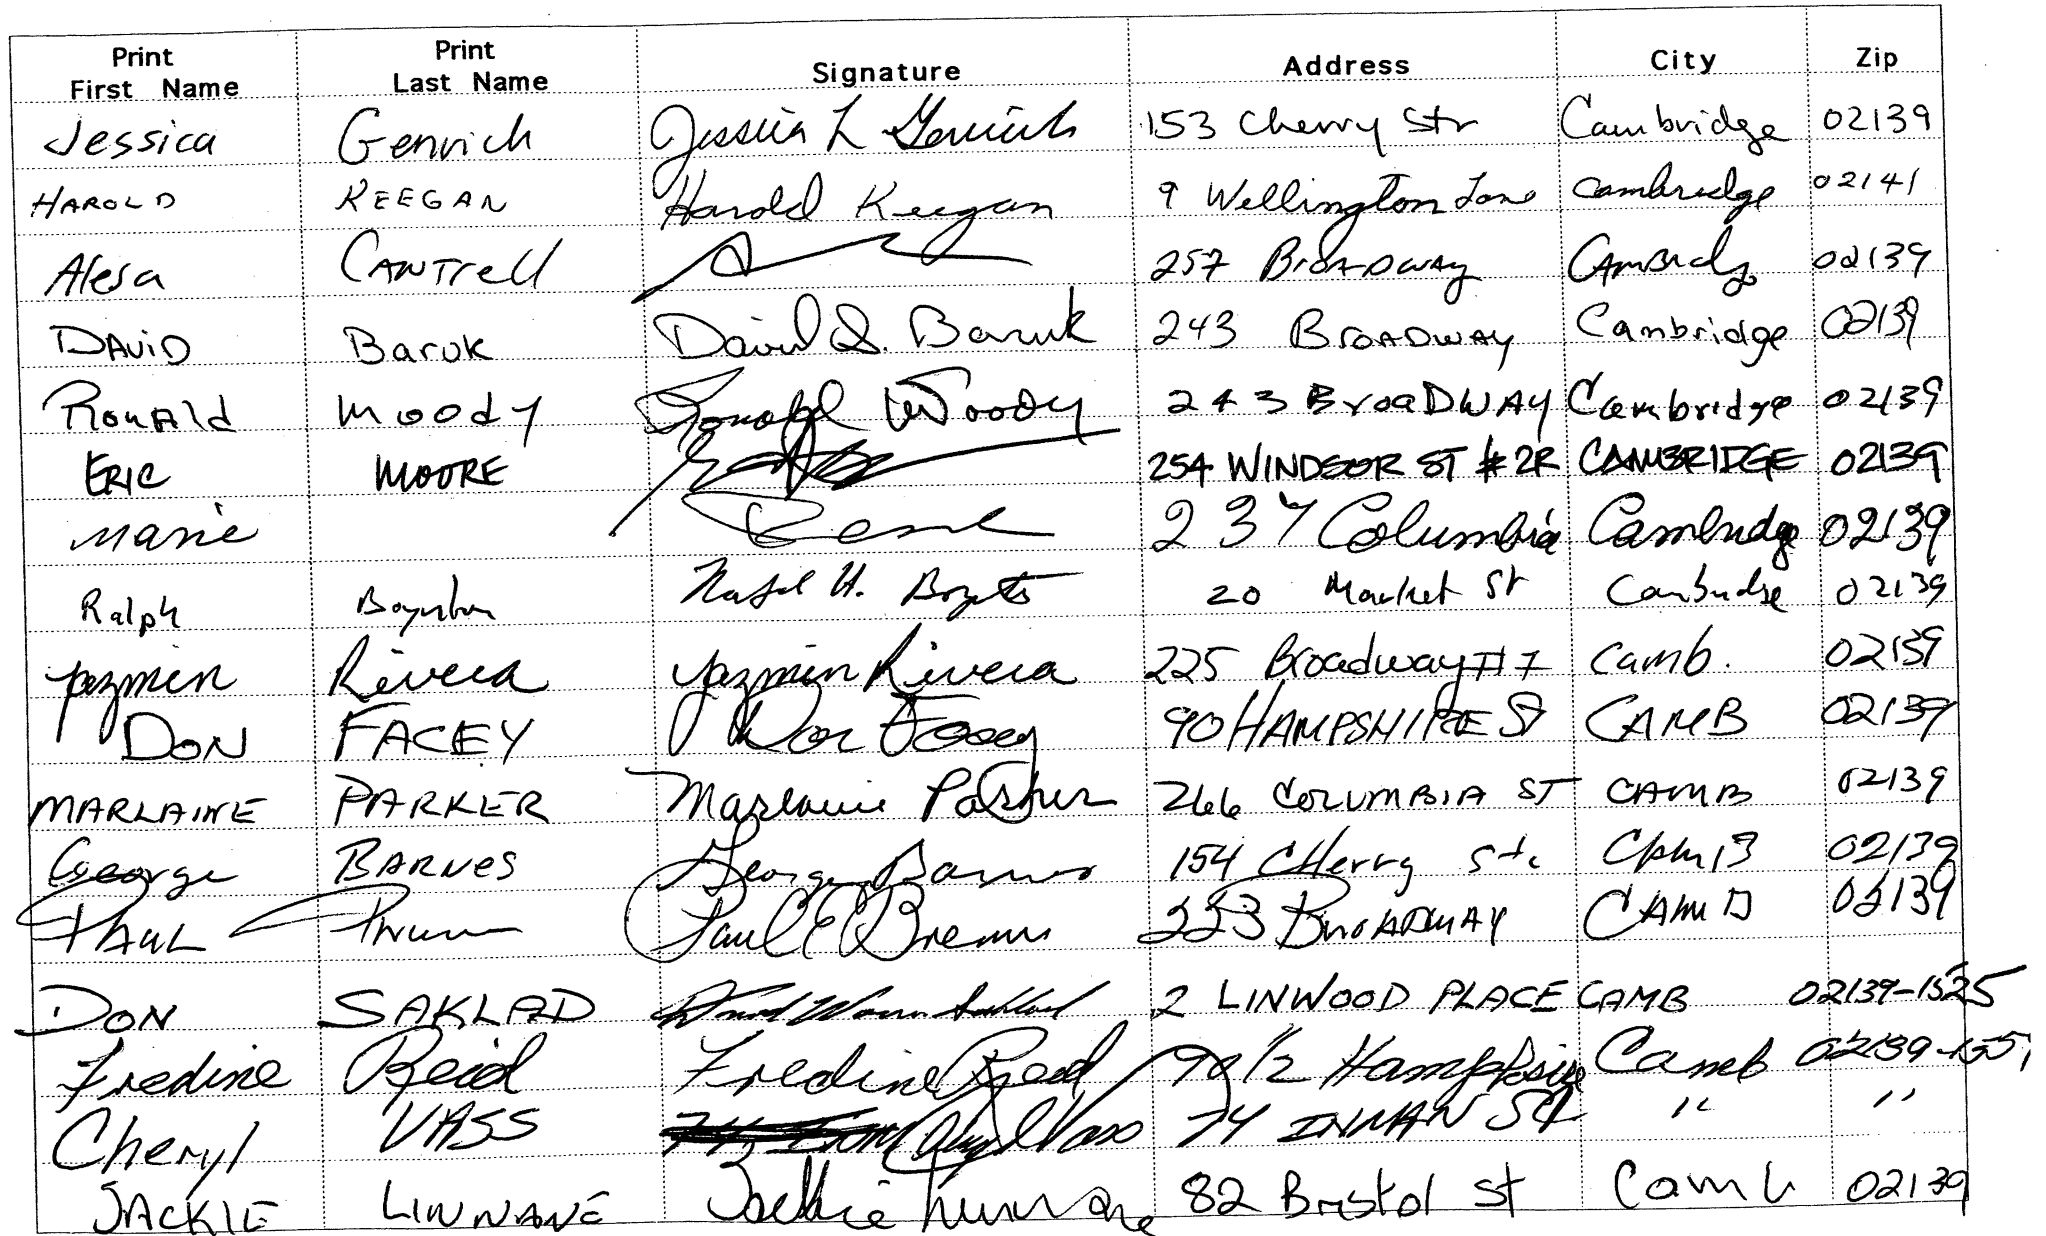 Print First Name Print Last Name Signature Address City Zip
Jessica Genrich Jessica L Genrich 153 Cherry Str Cambridge 02139
HAROLD KEEGAN Harold Keegan 9 Wellington Lane Cambridge 02141
Alesa CANTrell 257 BrOADWAY CAMBridg 02139
DAViD Baruk David S. Baruk 243 BROADWAY Cambridge 02139
RonAld Moody Ronald Moody 243 BroaDWAY Cambridge 02139
ERIC MOORE 254 WINDSOR ST #2R CAMBRIDGE 02139
Marie 237 Columbia Cambridge 02139
Ralph Boynton Ralph H. Boynton 20 Market St Cambridge 02139
yazmin Rivera yazmin Rivera 225 Broadway #7 Camb. 02139
DON FACEY Don Facey 90 HAMPSHIRE St CAMB 02139
MARLAINE PARKER Marlaine Parker 266 COLUMBIA ST CAMB 02139
George BARNES George Barnes 154 CHerry Str CAMB 02139
PAUL Paul E 223 BROADWAY CAMB 02139
DON SAKLAD 2 LINWOOD PLACE CAMB 02139-1525
Fredine Reid Fredine Reid 90 1/2 Hampshire Camb 02139-1551
Cheryl VASS Cheryl Vass 74 INMAN St " "
JACKIE LINNANE Jackie Linnane 82 Bristol St Camb 02139